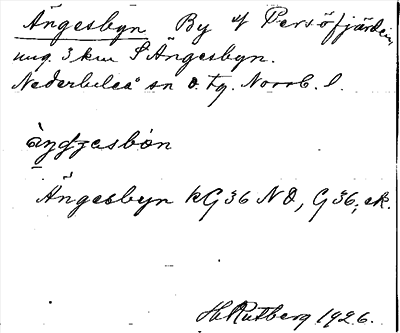 Ängesbyn By vf Persöfjärden,
ung. 3 km S Ängesbyn.
Nederluleå sn o. tg. Norrb. l.
àŋgesbön
Ängesbyn kG36 NO, G36; ek.
H. Rutberg 1926.